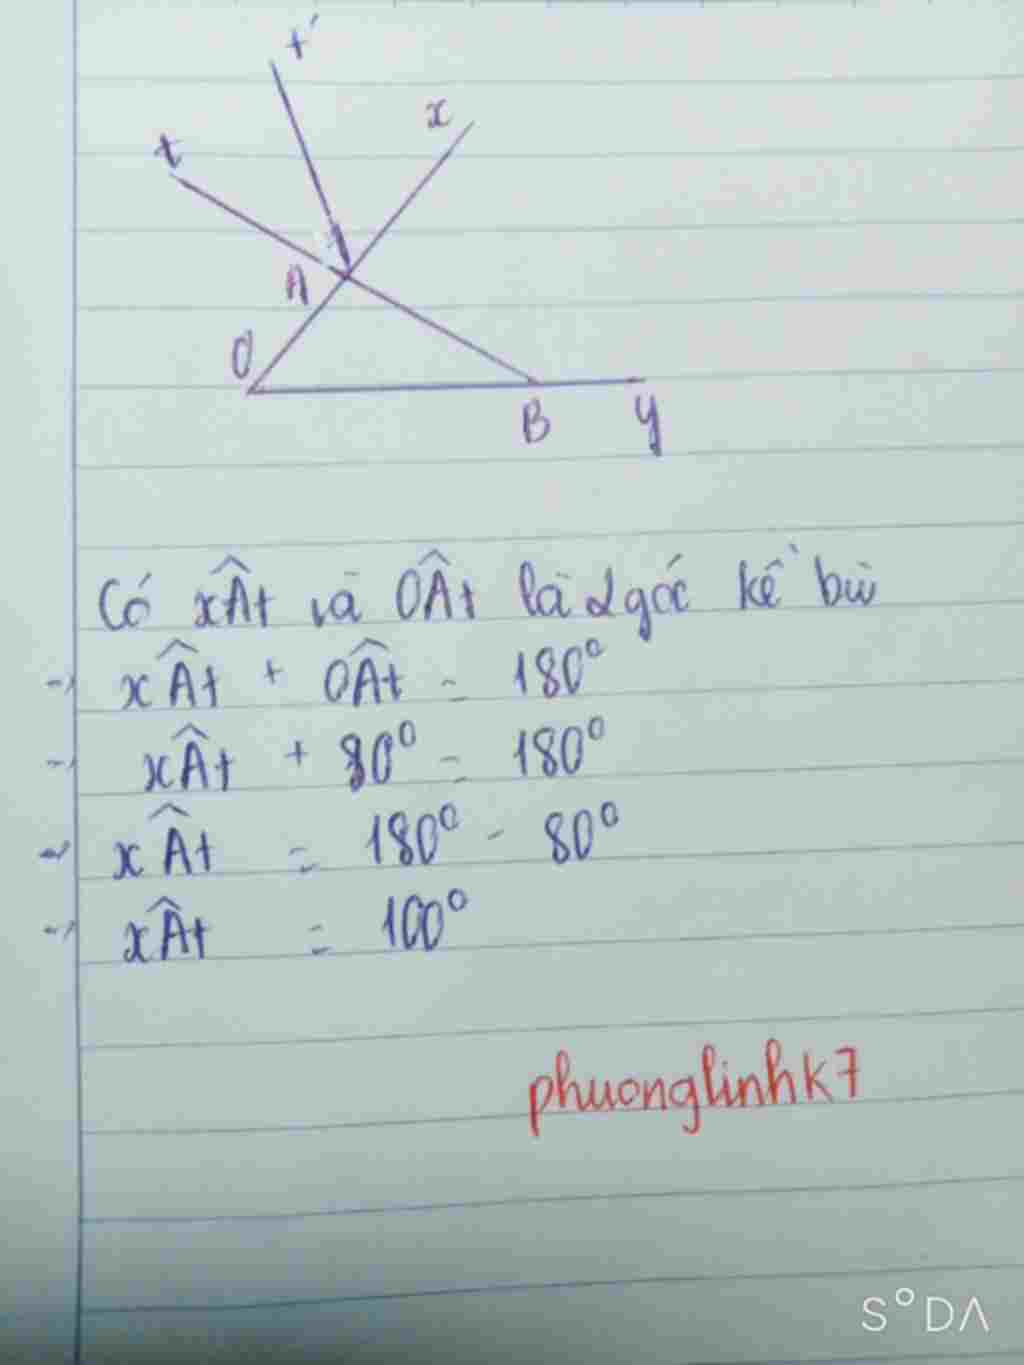 t'
x
t
A
O
B
y
Có xÂt và OÂt là 2 góc kề bù
-) xÂt + OÂt = 180°
-) xÂt + 80° = 180°
-) xÂt = 180° - 80°
-) xÂt = 100°
phuonglinhk7
SODA